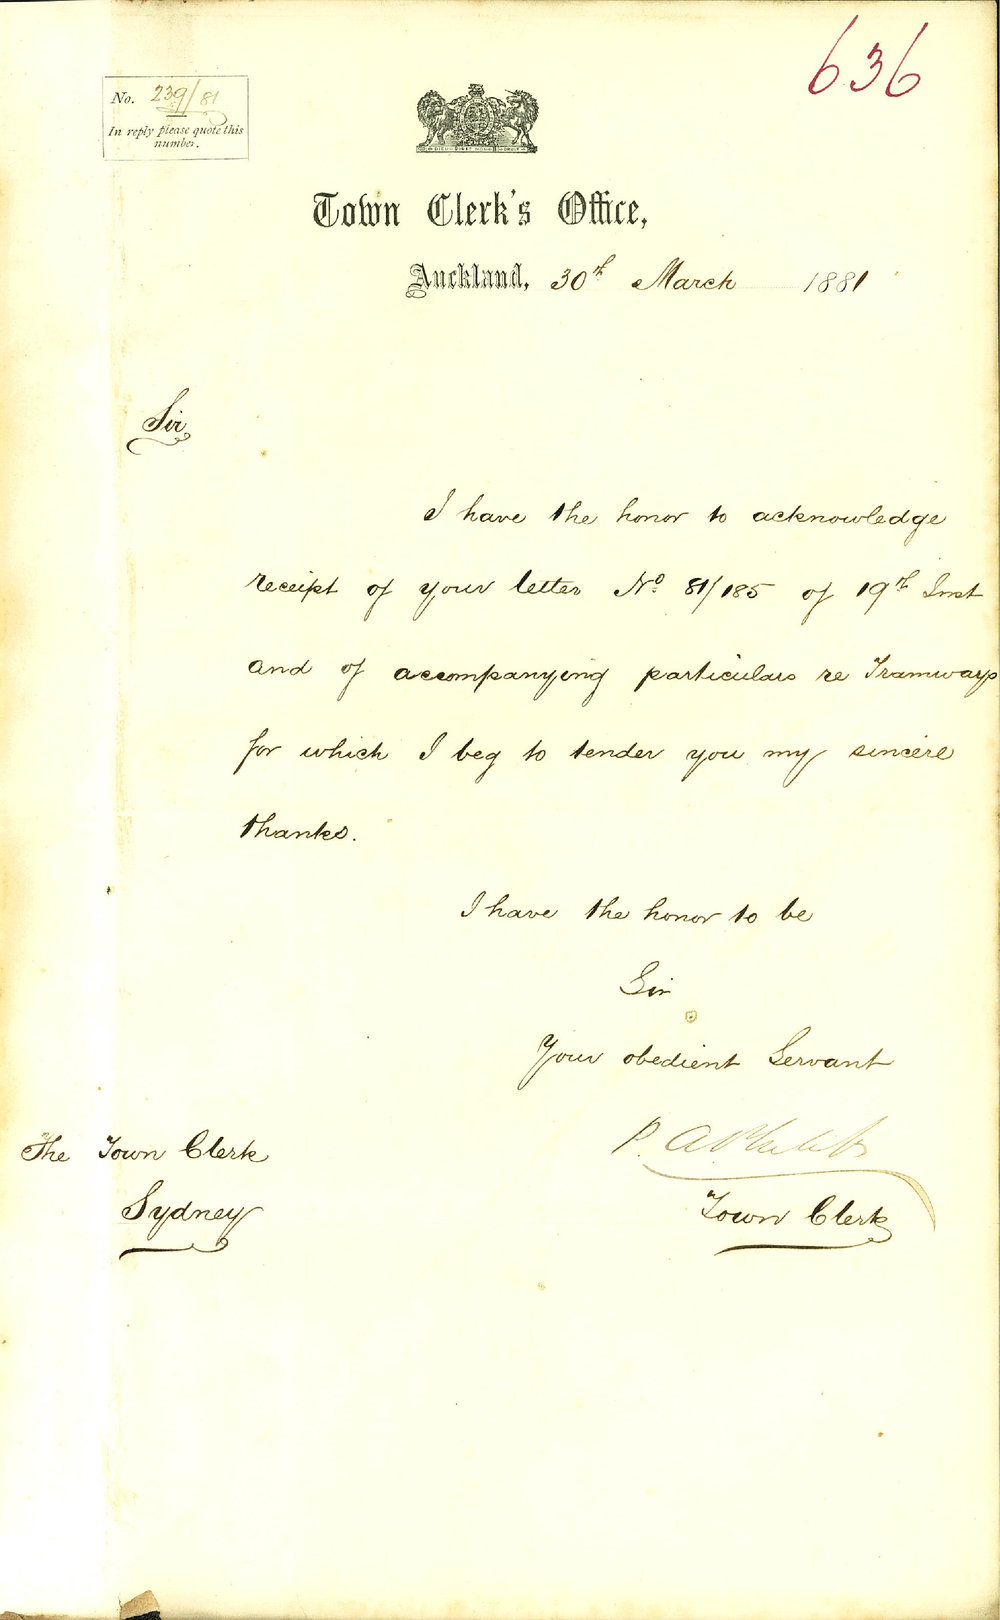 636
No. 239/81
In reply please quote this
number.
DIEU ET MON DROIT
Town Clerk's Office,
Auckland, 30th March 1881
Sir
I have the honor to acknowledge
receipt of your letter No. 81/185 of 19th Inst
and of accompanying particulars re Tramways
for which I beg to tender you my sincere
thanks.
I have the honor to be
Sir
Your obedient Servant
P. A. Philips
Town Clerk
The Town Clerk
Sydney